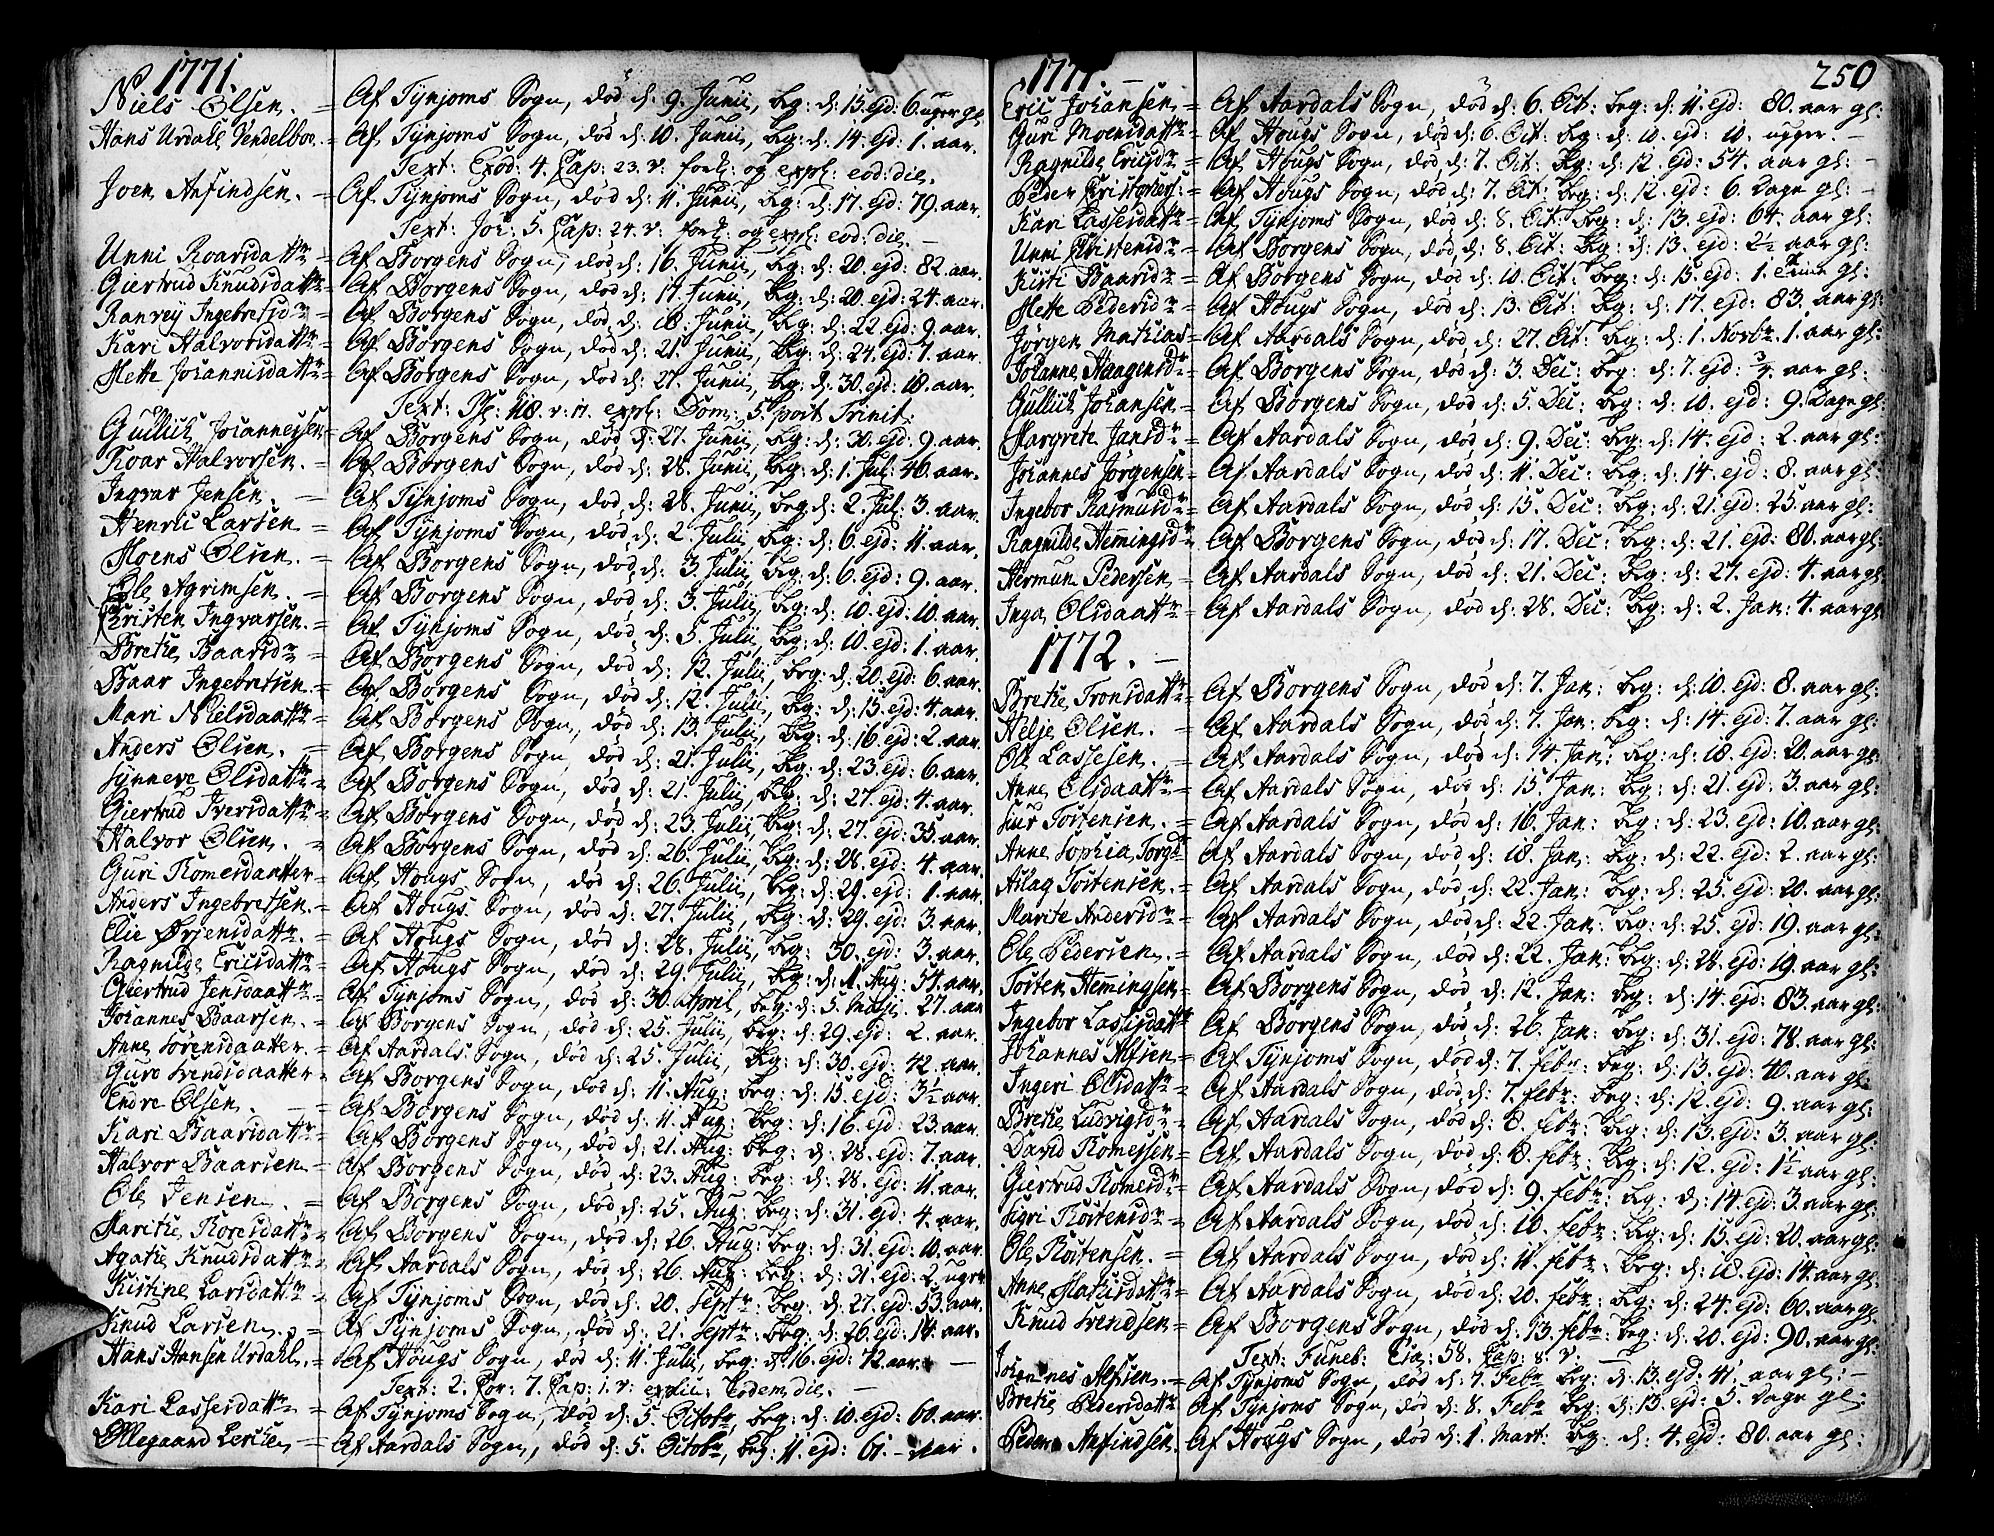 1771.
Niels Olsen. = Af Tÿnjoms Sogn, død d: 9. Junii, beg: d: 15. ejd: 6. uger gl
Hans Urdahl Vendelboe. = Af Tÿnjoms Sogn, død d: 10. Junii, beg: d: 14. ejd: 1. aar.
Text: Exod: 4. Cap: 23. v: fork: og expl: eod: die.
Joen Anfindsen. = Af Tÿnjoms Sogn, død d: 11. Junii, beg: d: 17. ejd: 79. aar.
Text: Joh: 5. Cap: 24. v: fork: og expl: eod: die. —
Unni Roarsdattr = Af Borgens Sogn, død d: 16. Junii, beg: d: 20. ejd: 82. aar.
Giertrud Knudsdattr = Af Borgens Sogn, død d: 17. Junii, beg: d: 20. ejd: 24. aar.
Ranvey Ingebretsdr = Af Borgens Sogn, død d: 18. Junii, beg: d: 22. ejd: 9. aar.
Kari Halvorsdattr = Af Borgens Sogn, død d: 21. Junii, beg: d: 24. ejd: 7. aar.
Mette Johannisdattr = Af Borgens Sogn, død d: 27. Junii, beg: d: 30. ejd: 18. aar.
Text: Ps: 118. v: 17. expl: Dom: 5. post Trinit:
Gulluk Johannessen = Af Borgens Sogn, død d: 27. Junii, beg: d: 30. ejd: 9. aar.
Roar Halvorsen. = Af Borgens Sogn, død d: 28. Junii, beg: d: 1. Jul: 46. aar.
Ingvar Jensen. — Af Tÿnjoms Sogn, død d: 28. Junii, beg: d: 2. Jul: 3. aar.
Henric Larsen = Af Tÿnjoms Sogn, død d: 2. Julii, beg: d: 6. ejd: 11. aar.
Moens Olsen. = Af Borgens Sogn, død d: 3. Julii, beg: d: 6. ejd: 9. aar.
Ole Agrimsen. = Af Borgens Sogn, død d: 3. Julii, beg: d: 10. ejd: 10. aar.
Christen Ingvarsen. = Af Tÿnjoms Sogn, død d: 5. Julii, beg: d: 10. ejd: 1. aar.
Brethe Baarsdr = Af Borgens Sogn, død d: 12. Julii, beg: d: 20. ejd: 6. aar.
Baar Ingebretsen = Af Borgens Sogn, død d: 12. Julii, beg: d: 15. ejd: 4. aar.
Mari Nielsdaattr = Af Borgens Sogn, død d: 13. Julii, beg: d: 16. ejd: 2. aar.
Anders Olsen. = Af Borgens Sogn, død d: 21. Julii, beg: d: 23. ejd: 6. aar.
Sÿnneve Olsdattr = Af Borgens Sogn, død d: 21. Julii, beg: d: 27. ejd: 4. aar.
Giertrud Iversdattr = Af Borgens Sogn, død d: 23. Julii, beg: d: 27. ejd: 35. aar.
Halvor Olsen. = Af Borgens Sogn, død d: 26. Julii, beg: d: 28. ejd: 4. aar.
Guri Romersdaatter = Af Hougs Sogn, død d: 26. Julii, beg: d: 29. ejd: 1. aar.
Anders Ingebretsen. = Af Hougs Sogn, død d: 27. Julii, beg: d: 29. ejd: 3. aar.
Elie Ørjensdattr. = Af Hougs Sogn, død d: 28. Julii, beg: 30. ejd: 3. aar.
Ragnilde Ericsdattr = Af Hougs Sogn, død d: 29. Julii, beg: d: 1. Aug: 54. aar.
Giertrud Jensdaattr = Af Tÿnjoms Sogn, død d: 30. April, beg: d: 5. Maji. 27. aar
Johannes Baarsen. = Af Borgens Sogn, død d: 25. Julii, beg: d: 29. ejd: 2. aar.
Anne Sørensdaatter. = Af Aardals Sogn, død d: 25. Julii, beg: d: 30. ejd: 42. aar.
Guro Svendsdaatter = Af Borgens Sogn, død d: 11. Aug: beg: d: 15. ejd: 3½ aar.
Endre Olsen. = Af Borgens Sogn, død d: 11. Aug: beg: d: 16. ejd: 23. aar.
Kari Baarsdattr = Af Borgens Sogn, død d: 21. Aug: beg: d: 28. ejd: 7. aar.
Halvor Baarsen = Af Borgens Sogn, død d: 23. Aug: beg: d: 28. ejd: 11. aar.
Ole Jensen. = Af Borgens Sogn, død d: 25. Aug: beg: d: 31. ejd: 4. aar.
Marithe Roresdattr = Af Borgens Sogn, død d: 26. Aug: beg: d: 31. ejd: 10. aar.
Agathe Knudsdattr = Af Aardals Sogn, død d: 26. Aug: beg: d: 31. ejd: 2. ugr
Kirstine Larsdattr = Af Tÿnjoms Sogn, død d: 20. Septr: beg: d: 27. ejd: 53. aar.
Knud Larsen. = Af Tÿnjoms Sogn, død d: 21. Septr: beg: d: 26. ejd: 14. aar.
Hans Hansen Urdahl. = Af Hougs Sogn, død d: 11. Julii, beg: d: 16. ejd: 72. aar. —
Text: 2. Cor: 7. Cap: 1. v: explic: Eodem die. —
Kari Lassesdattr = Af Tÿnjoms Sogn, død d: 5. Octobr, beg: d: 10. ejd: 60. aar.
Ollegaard Lersen = Af Aardals Sogn, død d: 5. Octobr, beg: 11. ejd: 61. aar.
1771. —
250
Eric Johansen = Af Aardals Sogn, død d: 6. Oct: beg: d: 11. ejd: 80. aar gl:
Guri Moensdattr = Af Hougs Sogn, død d: 6. Oct: beg: d: 10. ejd: 10. uger. —
Ragnilde Ericsdr = Af Hougs Sogn, død d: 7. Oct: beg: d: 12. ejd: 54. aar gl: —
Peder Christophers: = Af Hougs Sogn, død d: 7. Oct: beg: d: 12. ejd: 6. Dage gl: —
Kari Lassesdattr = Af Tÿnjoms Sogn, død d: 8. Oct: beg: d: 13. ejd: 64. aar gl:
Unni Christensdr = Af Borgens Sogn, død d: 8. Oct: beg: d: 13. ejd: 2½ aar gl:
Kisti Baarsdr = Af Borgens Sogn, død d: 10. Oct: beg: d: 15. ejd: 1. Time gl:
Mette Pedersdr = Af Hougs Sogn, død d: 13. Oct: beg: d: 17. ejd: 83. aar gl:
Jørgen Mathias = Af Aardals Sogn, død d: 27. Oct: beg: d: 1. Novbr. 1. aar gl:
Johanne Haagensdr = Af Borgens Sogn, død d: 3. Dec: beg: d: 7. ejd: ¾. aar gl:
Gulluk Johansen = Af Borgens Sogn, død d: 5. Dec: beg: d: 10. ejd: 9. Dage gl:
Margrete Jansdr = Af Aardals Sogn, død d: 9. Dec: beg: d: 14. ejd: 2. aar gl:
Johannes Jørgensen = Af Aardals Sogn, død d: 11. Dec: beg: d: 14. ejd: 8. aar gl:
Ingebor Rasmusdr = Af Aardals Sogn, død d: 15. Dec: beg: d: 21. ejd: 25. aar gl:
Ragnilde Hemingsdr = Af Borgens Sogn, død d: 17. Dec: beg: d: 21. ejd: 80. aar gl:
Hermun Pedersen = Af Aardals Sogn, død d: 21. Dec: beg: d: 27. ejd: 4. aar gl:
Inga Olsdaattr = Af Aardals Sogn, død d: 28. Dec: beg: d: 2. Jan: 4. aar gl:
1772. —
Brethe Tronsdattr = Af Borgens Sogn, død d: 7. Jan: beg: d: 10. ejd: 8. aar gl:
Helje Olsen. = Af Aardals Sogn, død d: 7. Jan: beg: d: 14. ejd: 7. aar gl:
Ole Lassesen. = Af Aardals Sogn, død d: 14. Jan: beg: d: 18. ejd: 20. aar gl:
Anne Olsdaattr = Af Aardals Sogn, død d: 15. Jan: beg: d: 21. ejd: 3. aar gl:
Siur Tostensen. = Af Aardals Sogn, død d: 16. Jan: beg: d: 23. ejd: 10. aar gl:
Anne Sophia Torgd = Af Aardals Sogn, død d: 18. Jan: beg: d: 22. ejd: 2. aar gl:
Aslag Tostensen. = Af Aardals Sogn, død d: 22. Jan: beg: d: 25. ejd: 20. aar gl:
Marite Andersdr = Af Aardals Sogn, død d: 22. Jan: beg: d: 25. ejd: 19. aar gl:
Ole Pedersen. = Af Aardals Sogn, død d: 22. Jan: beg: d: 28. ejd: 19. aar gl:
Tosten Hemingsen = Af Borgens Sogn, død d: 12. Jan: beg: d: 14. ejd: 83. aar gl:
Ingebor Lassisdattr Af Borgens Sogn, død d: 26. Jan: beg: d: 31. ejd: 78. aar gl:
Johannes Alfsen = Af Tÿnjoms Sogn, død d: 7. Febr: beg: d: 13. ejd: 40. aar gl:
Ingeri Olsdattr = Af Aardals Sogn, død d: 7. Febr: beg: d: 12. ejd: 9. aar gl:
Brethe Ludvigsdr = Af Aardals Sogn, død d: 8. Febr: beg: d: 13. ejd: 3. aar gl:
David Romessen = Af Aardals Sogn, død d: 8. Febr: beg: d: 12. ejd: 1½ aar gl:
Giertrud Romersdr = Af Aardals Sogn, død d: 9. Febr: beg: d: 14. ejd: 3. aar gl:
Sigri Rostensdr = Af Aardals Sogn, død d: 10. Febr: beg: d: 15. ejd: 20. aar gl:
Ole Rostensen. = Af Aardals Sogn, død d: 11. Febr: beg: d: 18. ejd: 14. aar gl:
Anne Markusdattr = Af Aardals Sogn, død d: 20. Febr: beg: d: 24. ejd: 60. aar gl:
Knud Svendsen = Af Borgens Sogn, død d: 13. Febr: beg: d: 20. ejd: 90. aar gl:
Text: Funeb: Esa: 58. Cap: 8. v. —
Johannes Alfsen. = Af Tÿnjoms Sogn, død d: 7. Febr beg: d: 13. ejd: 41. aar gl: —
Brethe Pedersdattr = Af Tÿnjoms Sogn, død d: 8. Febr beg: d: 13. ejd: 5. Dage gl:
Peder Anfindsen. Af Hougs Sogn, død d: 1. Mart: beg: d: 4. ejd: 80. aar gl: